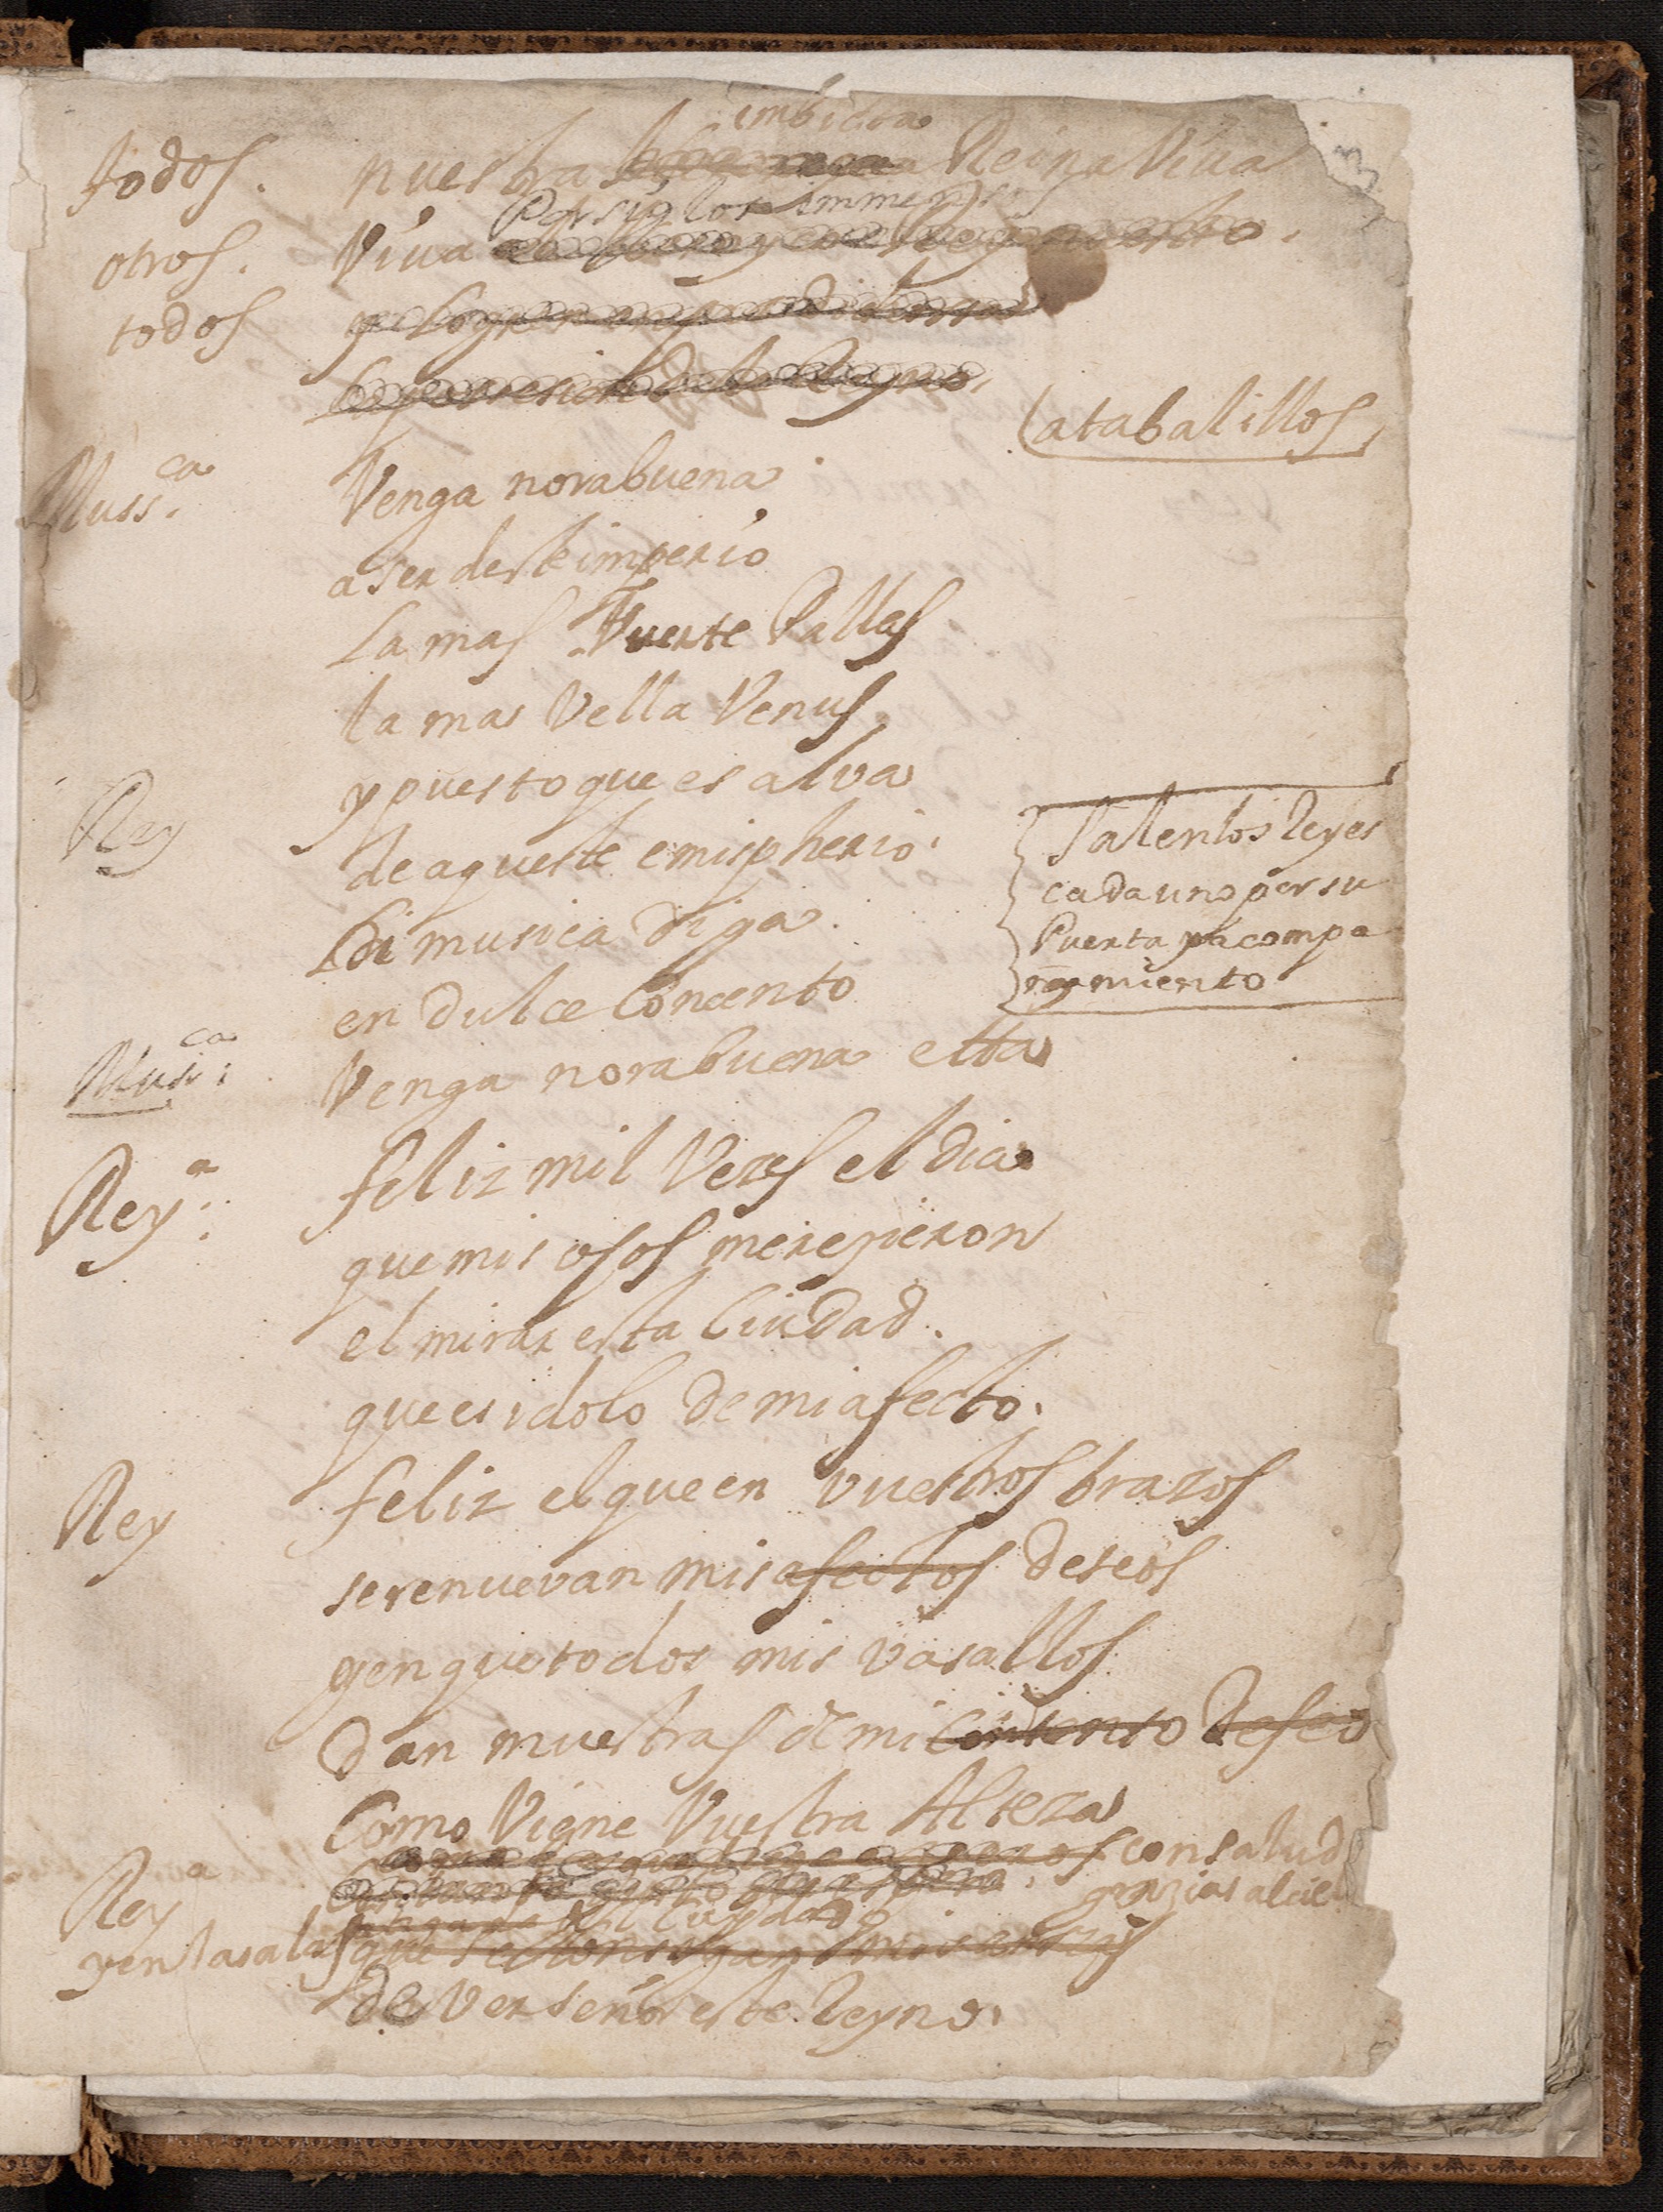 imbicta
todos. nuestra Reina Viua
Por siglos immensos
otros. Viua
todos
(atabalillos)
Muss.ca Venga norabuena
a ser deste imperio
La mas Fuerte Pallas
la mas Vella Venus
Rey y puesto que es alva
de aqueste emispherio
Salen los Reyes
cada uno por su
Puerta y acompa
ñamiento
La musica diga
en dulce Concento
Musi.ca Venga norabuena etta
Rey.a feliz mil Vezes el dia
que mis ojos merezieron
el mirar esta Ciudad.
que es idolo de mi afecto.
Rey feliz el que en vuestros brazos
se renuevan mis afectos deseos
y en que todos mis vasallos
dan muestras de mi contento deseo
Como Viene Vuestra Alteza
con salud
Rey.a grazias al cielo
y en las alas del Cuydado
que
de ver señor este Reyno.